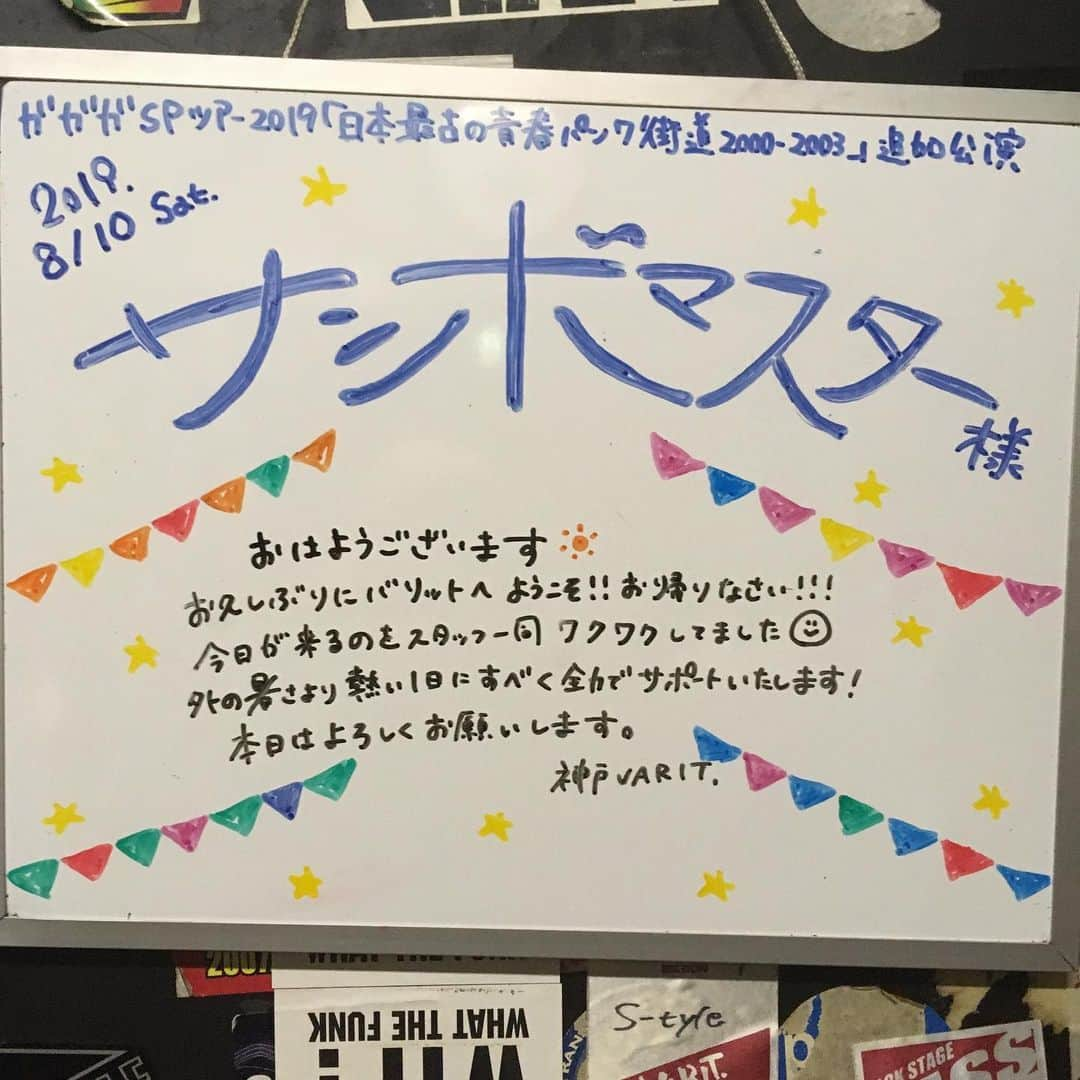 ガガガSPツアー2019「日本最古の青春パンク街道2000-2003」追加公演
2019.
8/10 Sat.
サンボマスター
様
おはようございます
お久しぶりにバリットへ ようこそ!! お帰りなさい!!!
今日が来るのをスタッフ一同 ワクワクしてました
外の暑さより 熱い1日にすべく全力でサポートいたします!
本日はよろしくお願いします。
神戸VARIT.
2007
WHAT THE FUNK
S-tyle
STAGE